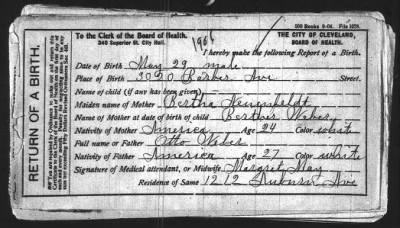 To the Clerk of the Board of Health.
340 Superior St. City Hall.
1906
500 Books 9-04. File 1078.
THE CITY OF CLEVELAND,
BOARD OF HEALTH.
I hereby make the following Report of a Birth.
RETURN OF A BIRTH.
Date of Birth May 29 male
Place of Birth 3020 Barber Ave Street.
Name of child (if any has been given)
Maiden name of Mother Bertha
Name of Mother at date of birth of child Bertha Weber
Nativity of Mother America Age 24 Color white
Full name or Father Otto Weber
Nativity of Father America Age 27 Color white
Signature of Medical attendant, or Midwife Margret May
Residence of Same 1212 Auburn Ave